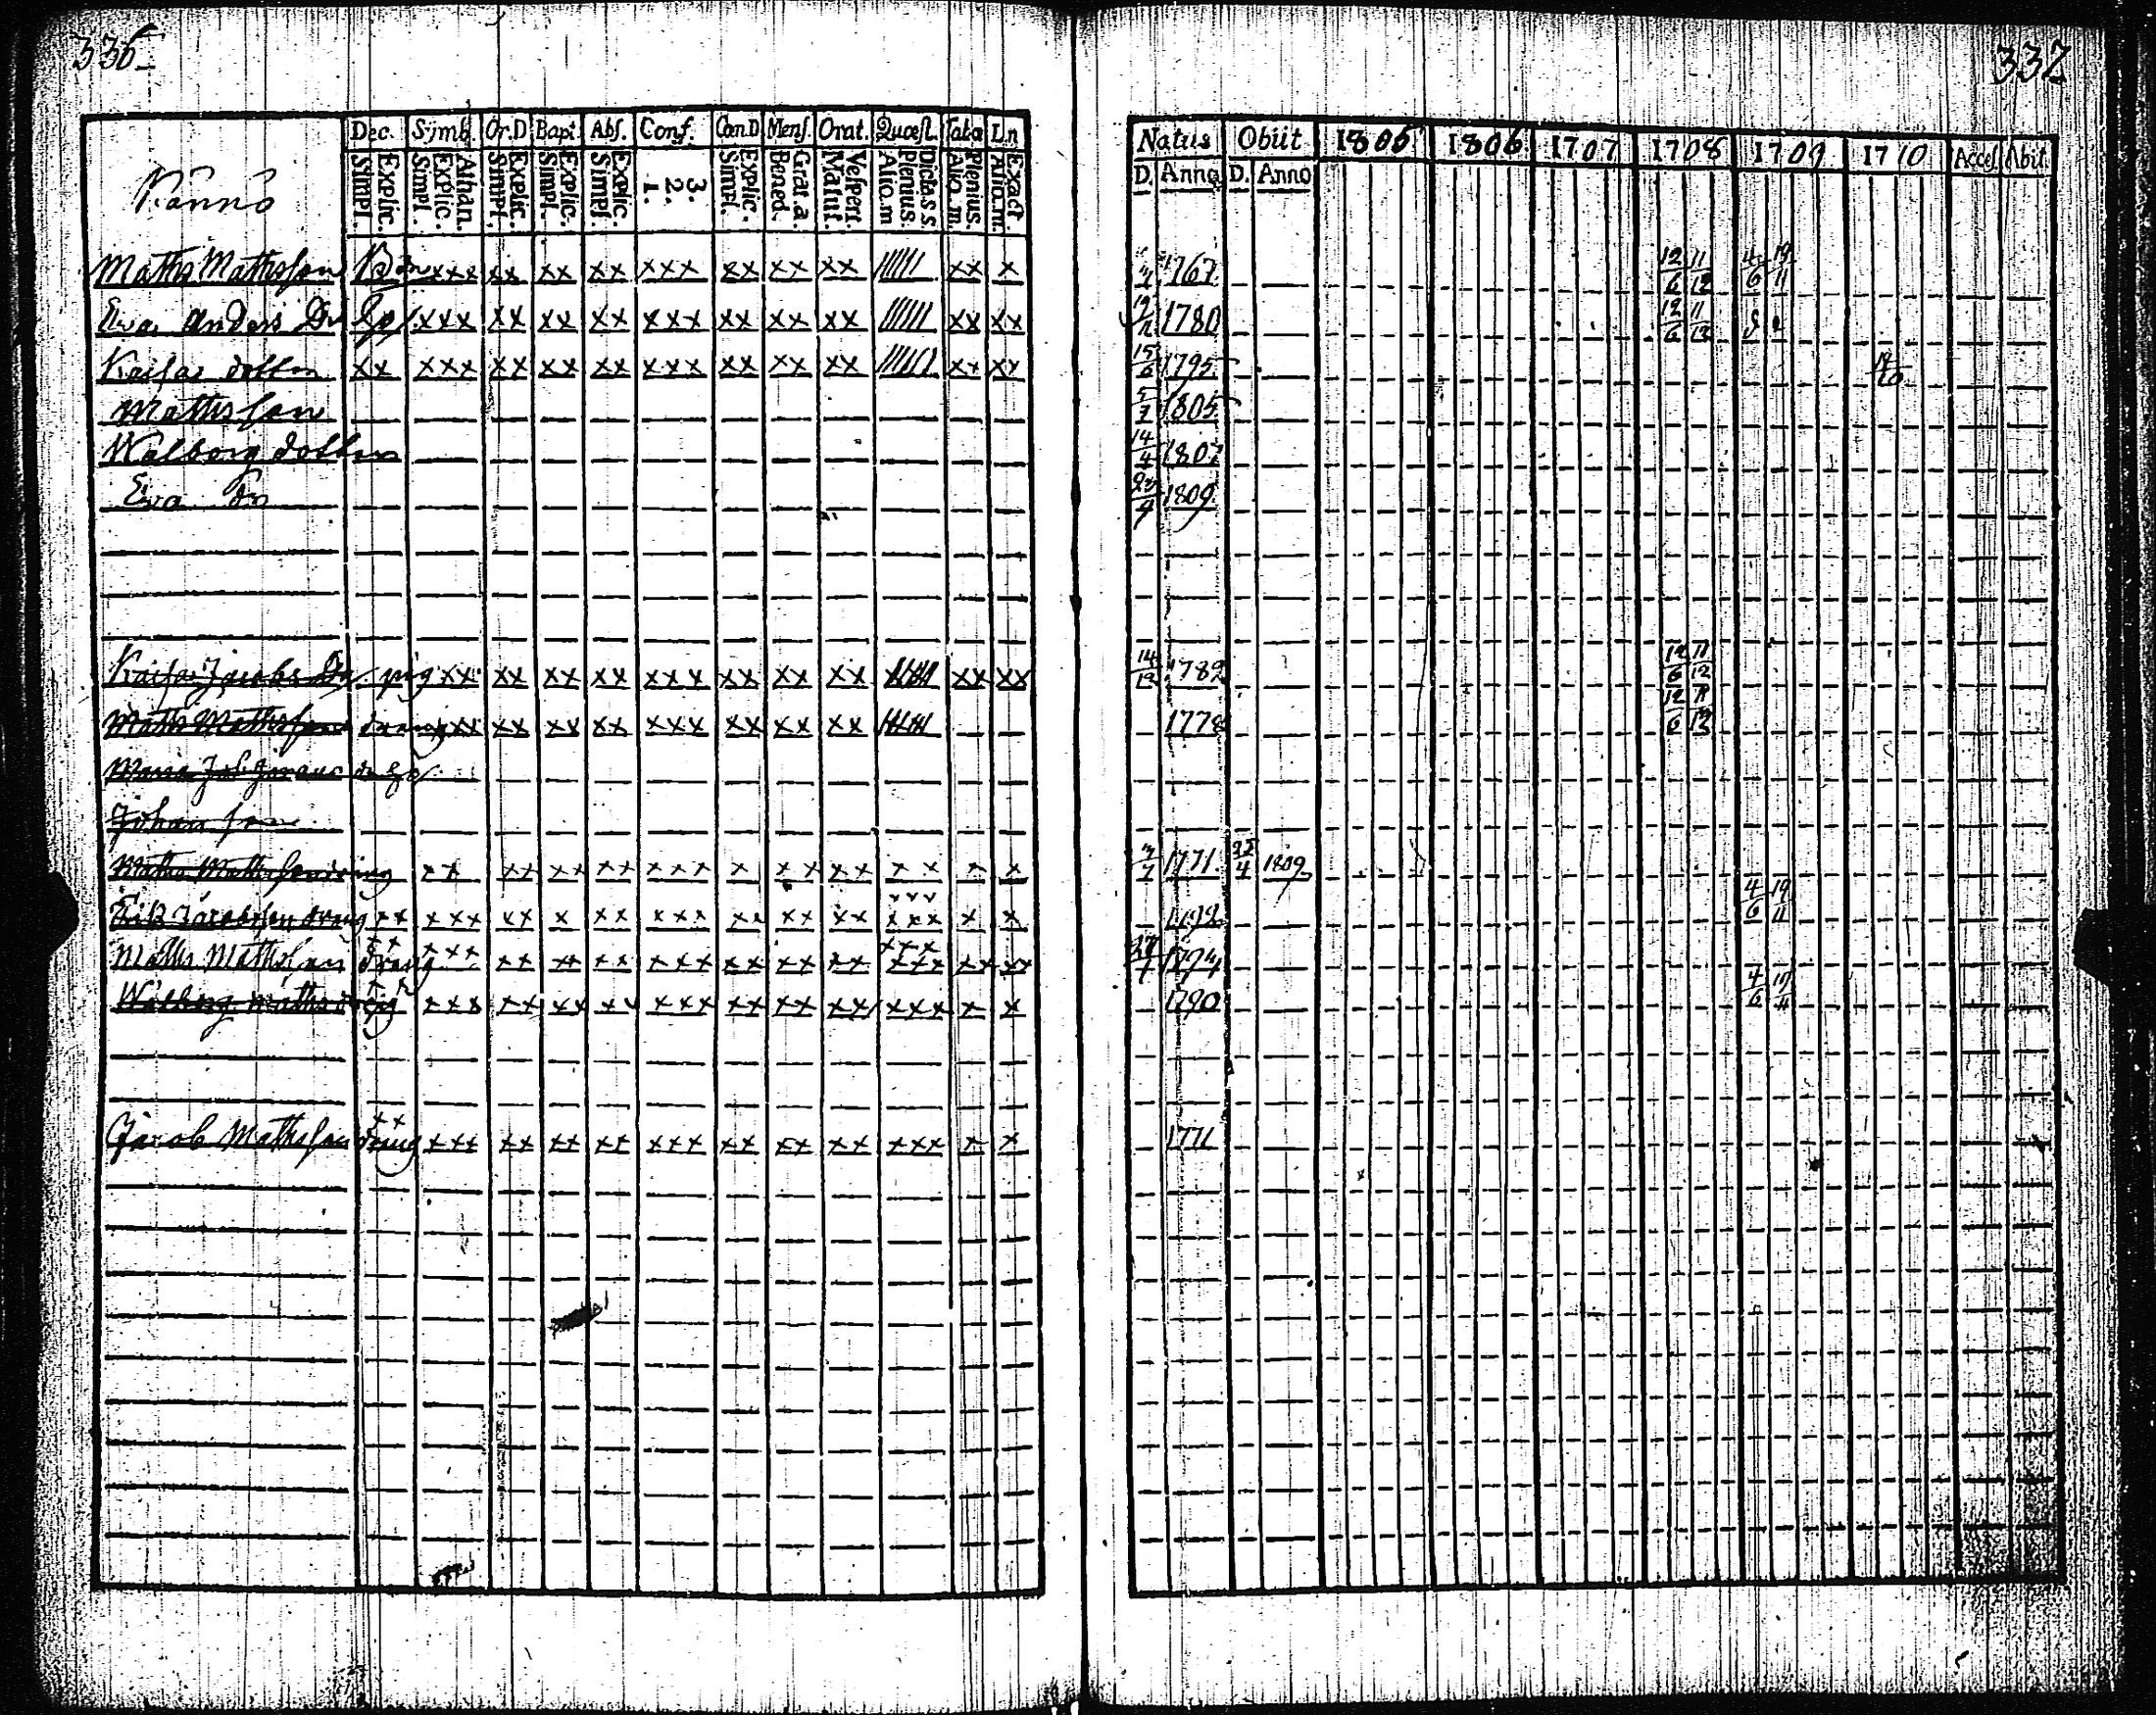 336 337
Dec. Symb. Or.D Bapt. Abs. Conf. Cœn.D Mens. Orat. Quæst. Tab.œ L.n
Natus Obiit 1805 1806 1707 1708 1709 1710 Acces. Abit.
Simpl. Explic. Simpl. Explic. Athan. Simpl. Explic. Simpl. Explic. Simpl. Explic. 1. 2. 3. Simpl. Explic. Bened. Grat.a. Matut. Vespert. Alio.m Plenius. Dicta.s.s Alio.m. Plenius. Alio.m. Exact.
D. Anno D. Anno
Känno
Matts Mattsson Bon xxx xx xx xx xxx xx xx xx |||||| xx x 1767 12/6 11/12 4/6 19/11
Eva Anders Dr xxx xx xx xx xxx xx xx xx |||||| xx xx 1780 12/6 11/12
Kaisa dotter xx xxx xx xx xx xxx xx xx xx |||||| xx xx 15/6 1795
Matts son 1805
Walborg dotter 14/4 1807
Eva Dr 1809
Kaisa Jacobs Dr pig xx xx xx xx xxx xx xx xx xx xx 14/12 1782 12/6 11/12
Matts Mattsson dräng xx xx xx xx xxx xx xx xx 1778 12/6 11/12
Maria
Johan son
Matts Mattsson dräng xx xx xx xx xxx x xx xx xx x x 1771 4 1809
Erik Jacobsson dräng xx xxx xx x xx xxx xx xx xx xxx xxx x x 4/6 19/11
Matts Mattsson dräng xx xxx xx xx xx xxx xx xx xx xxx xxx xx xx
Walborg Matts dr pig xx xxx xx xx xx xxx xx xx xx xxx x x 1790 4/6 19/11
Jacob Mattsson dräng xx xxx xx xx xx xxx xx xx xx xxx x x 1771